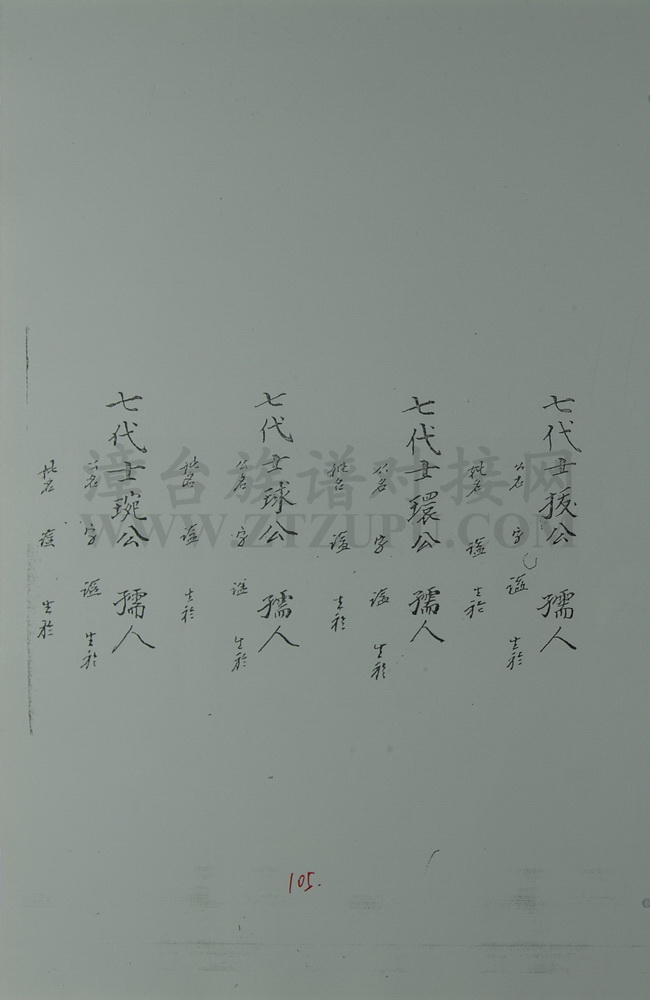 七代士援公 孺人
公名 字 謚 生於
妣名 謚 生於
七代士環公 孺人
公名 字 謚 生於
妣名 謚 生於
七代士球公 孺人
公名 字 謚 生於
妣名 謚 生於
七代士琬公 孺人
公名 字 謚 生於
妣名 謚 生於
漳台族谱对接网
WWW.ZTZUPU.COM
105.